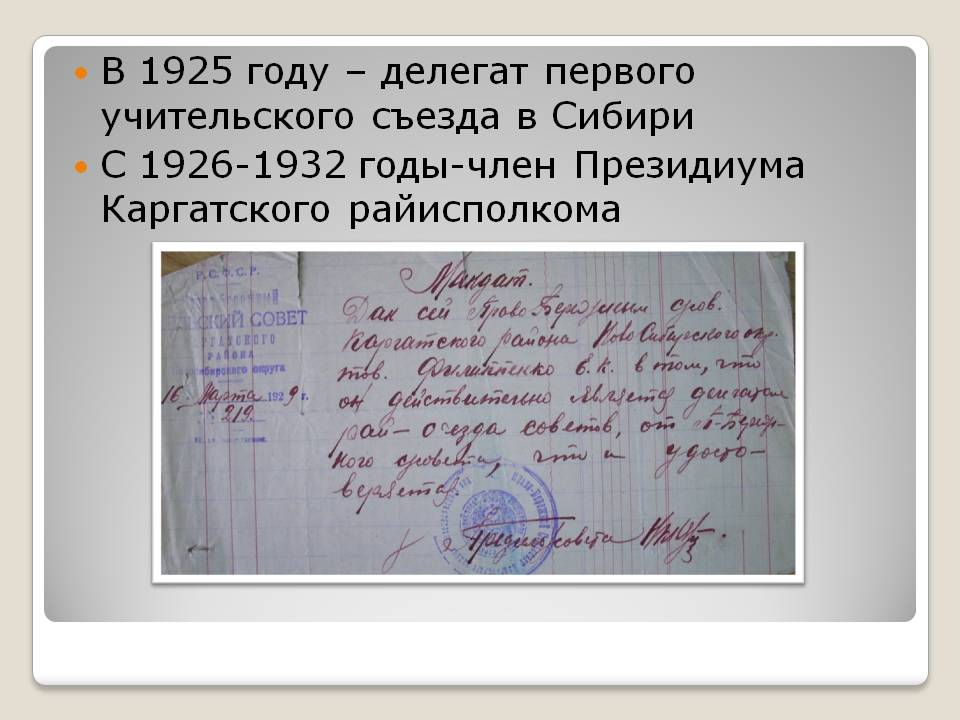 В 1925 году – делегат первого
учительского съезда в Сибири
С 1926-1932 годы-член Президиума
Каргатского райисполкома
Р.С.Ф.С.Р.
СКИЙ СОВЕТ
РАЙОНА
округа
16 Марта 1929 г.
219.
Мандат.
Дан сей Право Бережным сров.
Каргатского района Ново Сибирского окр.
тов. Филиппенко в том, что
он действительно является делегатом
рай – с'езда советов, от П-Береж-
ного сровета, что и удосто-
веряется
Пред. совета